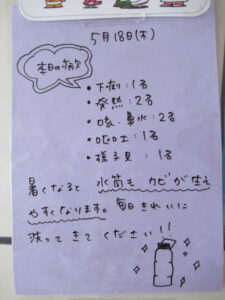 5月18日(木)
本日の病欠
・下痢:1名
・発熱:2名
・咳、鼻水:2名
・嘔吐:1名
・様子見:1名
暑くなると 水筒も カビが生え
やすくなります。毎日きれいに
洗ってきてください!!